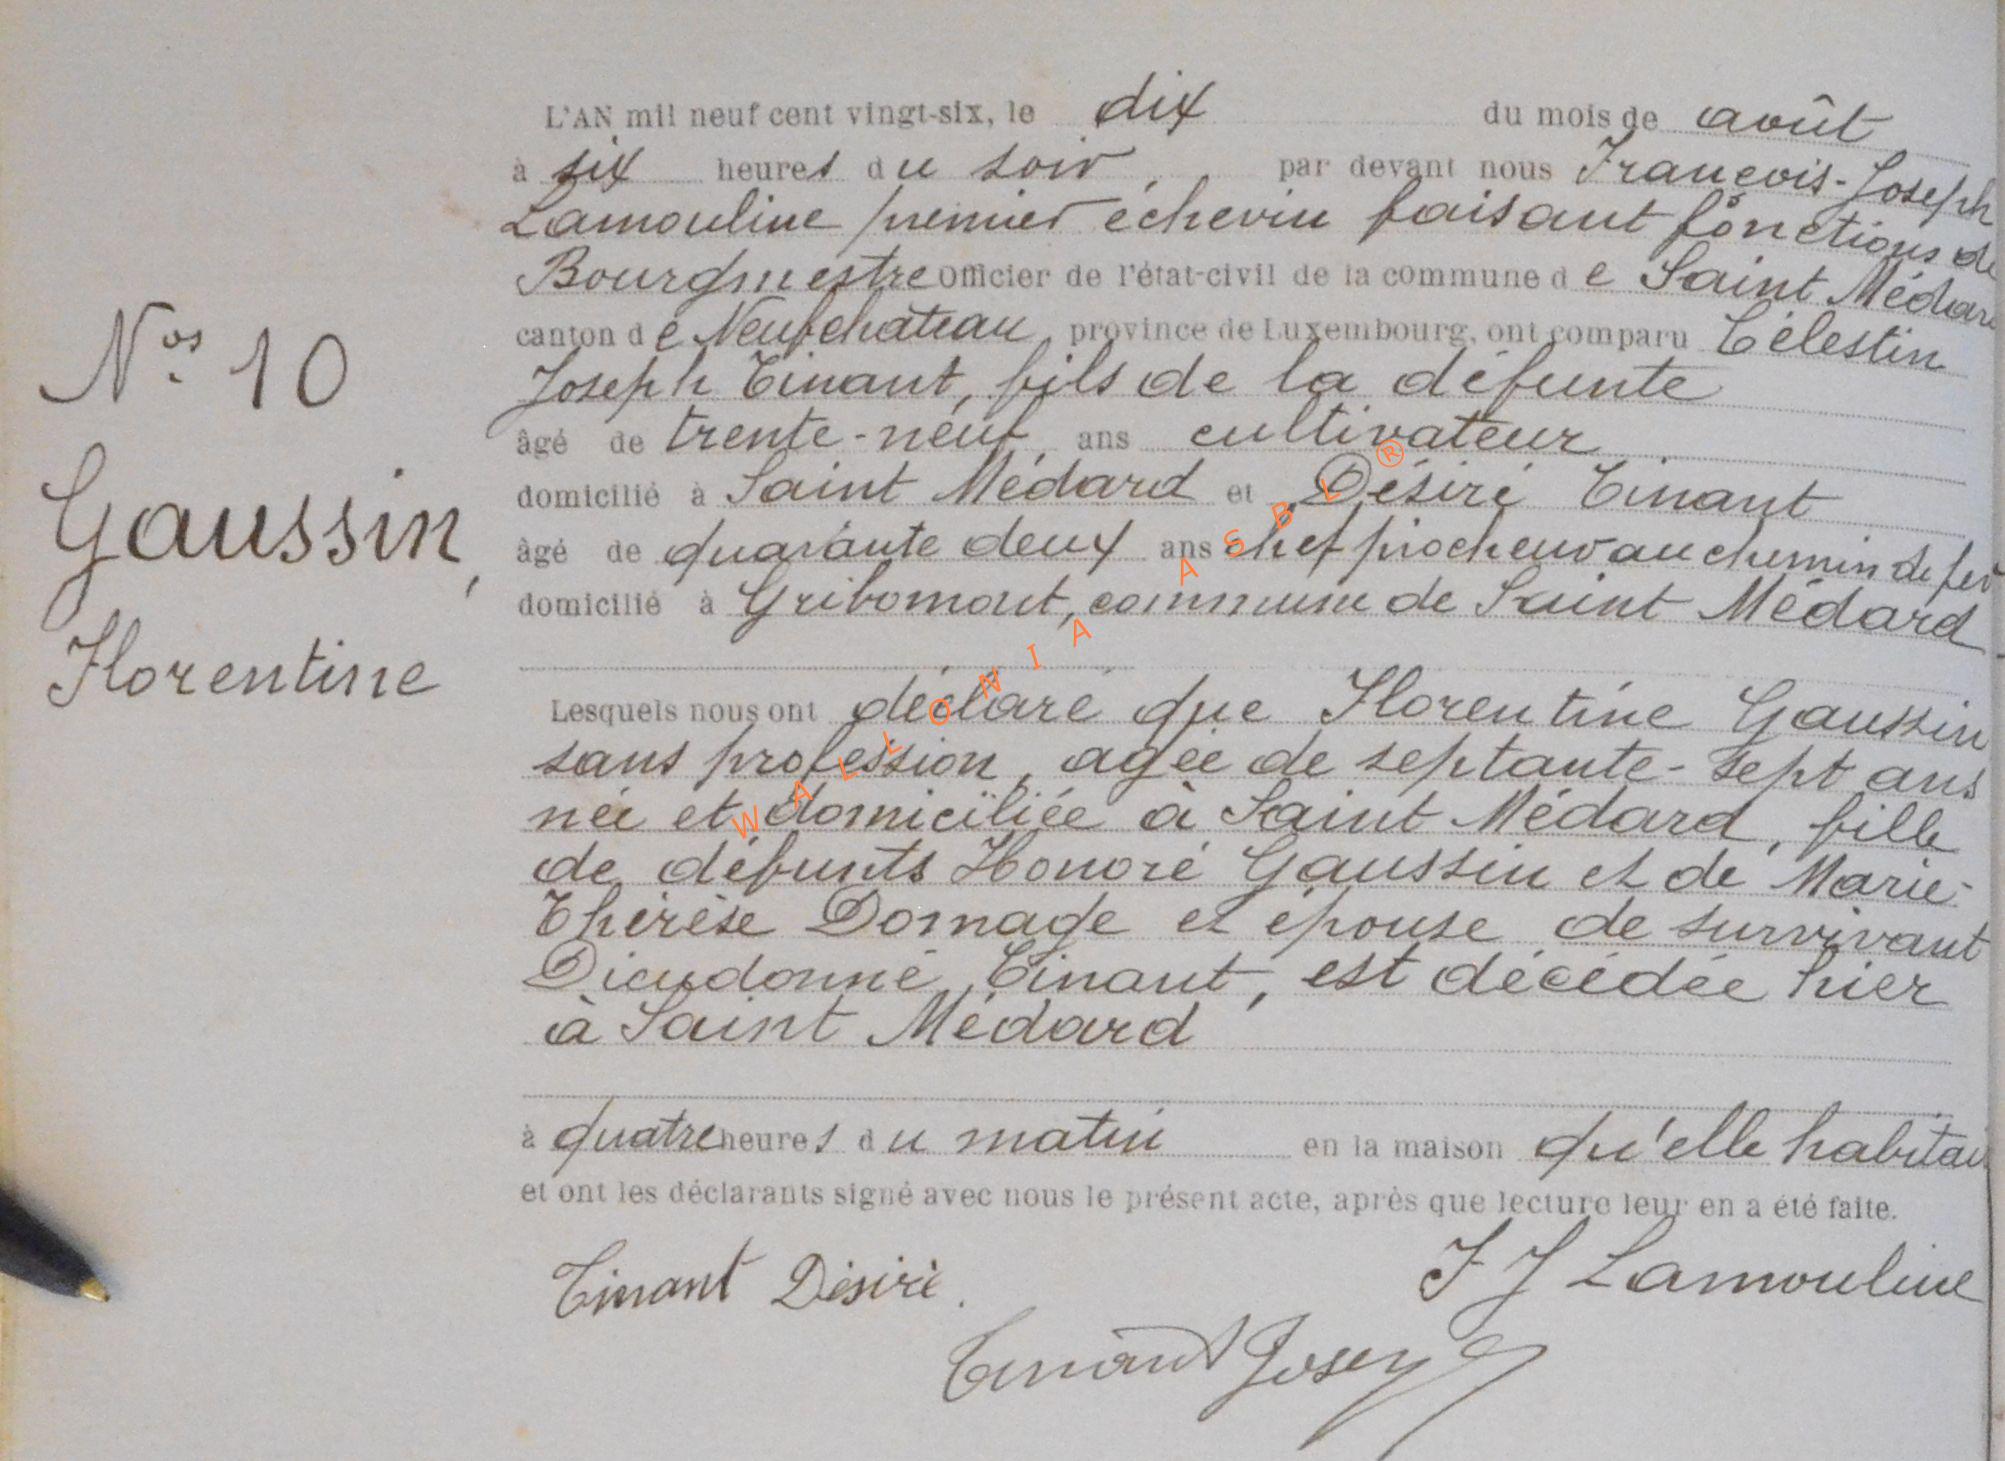 L'AN mil neuf cent vingt-six, le dix du mois de août
à six heures du soir, par devant nous François-Joseph
Lamouline premier échevin faisant fonctions de
Bourgmestre officier de l'état-civil de la commune de Saint Médard
canton de Neufchâteau, province de Luxembourg, ont comparu Célestin
Joseph Tinant, fils de la défunte
âgé de trente-neuf ans cultivateur
domicilié à Saint Médard et Désiré Tinant
âgé de quarante deux ans chef piocheur au chemin de fer
domicilié à Gribomont, commune de Saint Médard
Lesquels nous ont déclaré que Florentine Gaussin
sans profession, agée de septante-sept ans
née et domiciliée à Saint Médard, fille
de défunts Honoré Gaussin et de Marie-
Thérèse Domage et épouse de survivant
Dieudonné Tinant, est décédée hier
à Saint Médard
à quatre heures du matin en la maison qu'elle habitai
et ont les déclarants signé avec nous le présent acte, après que lecture leur en a été faite.
Tinant Désiré.
F J Lamouline
Tinant Joseph
Nos. 10
Gaussin,
Florentine
WALLONIA ASBL ®